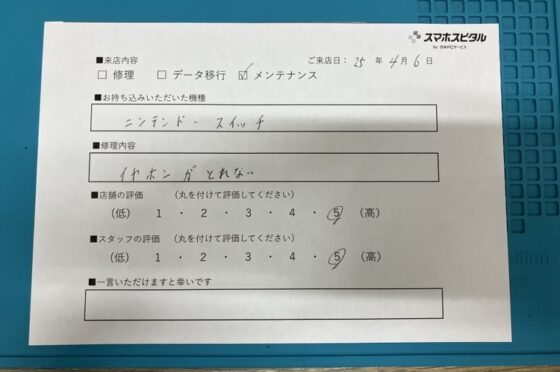 スマホスピタル
by 日本PCサービス
■来店内容
ご来店日：25 年 4 月 6 日
□ 修理 □ データ移行 ☑ メンテナンス
■お持ち込みいただいた機種
ニンテンドースイッチ
■修理内容
イヤホンがとれない
■店舗の評価 （丸を付けて評価してください）
（低） 1 ・ 2 ・ 3 ・ 4 ・ 5 （高）
■スタッフの評価 （丸を付けて評価してください）
（低） 1 ・ 2 ・ 3 ・ 4 ・ 5 （高）
■一言いただけますと幸いです